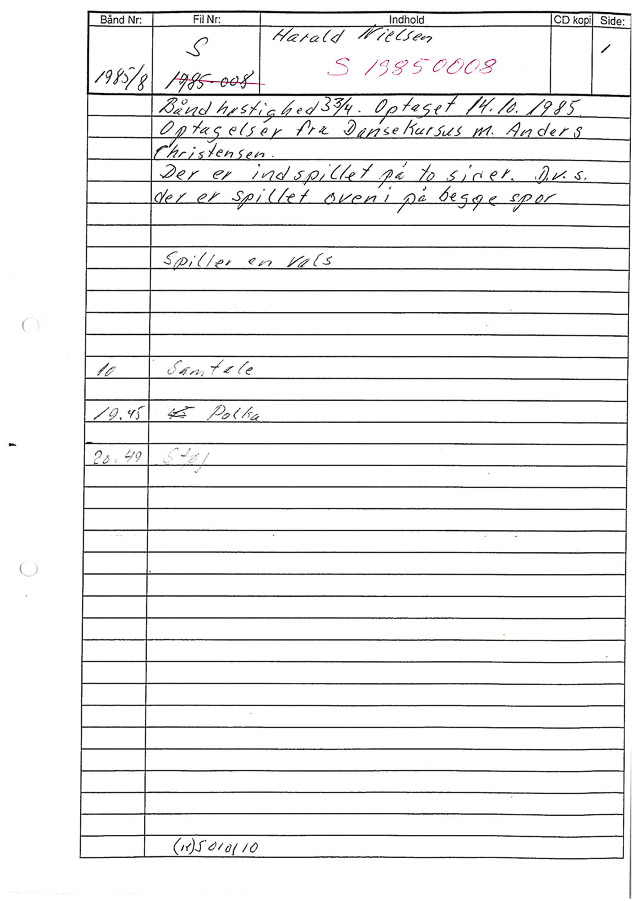 Bånd Nr: Fil Nr: Indhold CD kopi Side:
S Harald Nielsen 1
1985/8 1985-008 S 19850008
Båndhastighed 3 3/4. Optaget 14.10.1985.
Optagelser fra Dansekursus m. Anders
Christensen.
Der er indspillet på to sider. D.v.s.
der er spillet oveni på begge spor
Spiller en vals
10 Samtale
19.45 Polka
20.49 Støj